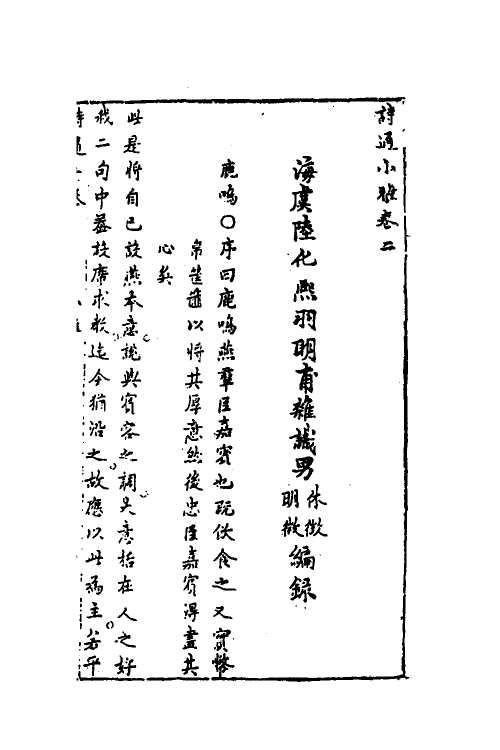 詩通小雅卷二
海虞陸化熈羽明甫雜議男
休徵
明徵
編錄
鹿鳴〇序曰鹿鳴燕羣臣嘉賓也既飲食之又實幣
帛筐篚以將其厚意然後忠臣嘉賓得盡其
心矣
此是將自已設燕本意說與賓客之詞大意括在人之好
我二句中蓋設席求教迄今猶沿之故應以此為主若平